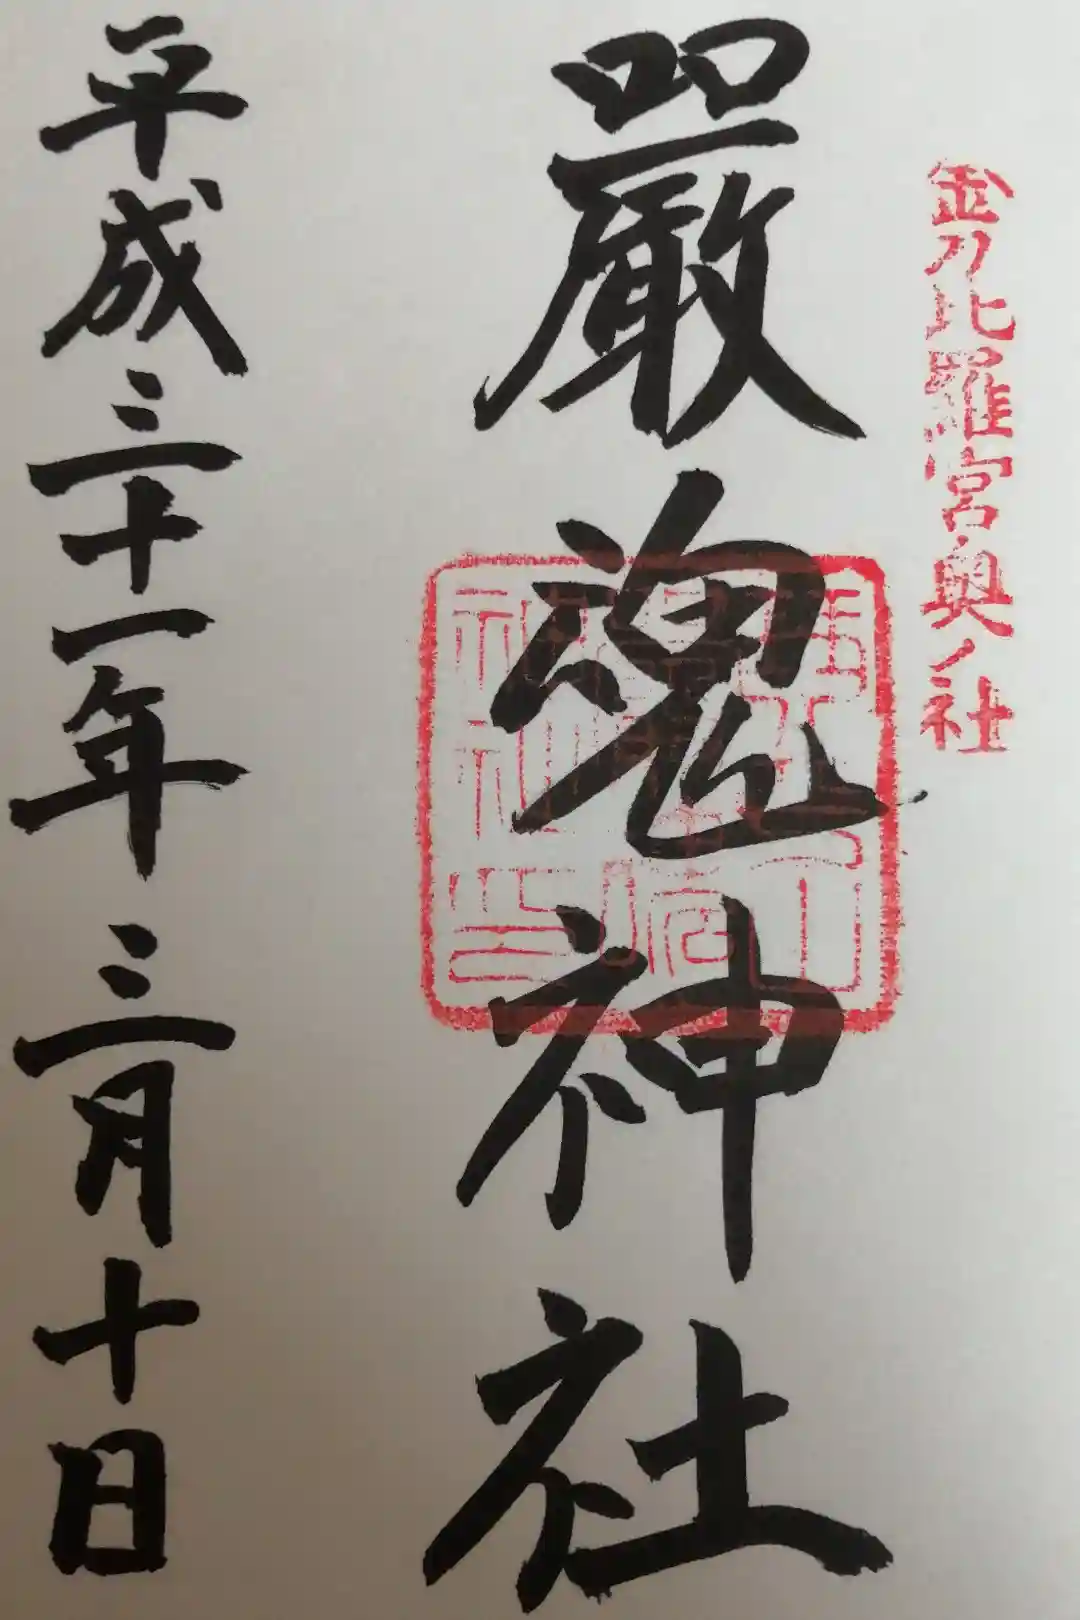 金刀比羅宮奥ノ社
嚴魂神社
平成三十一年三月十日